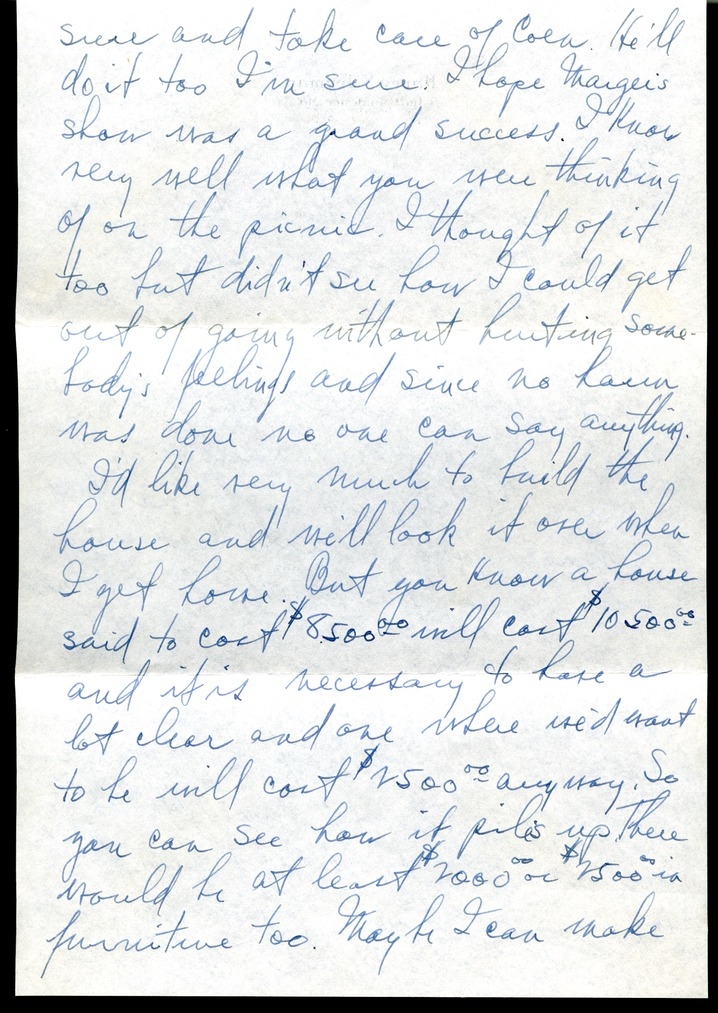 sure and take care of Coen. He'll
do it too I'm sure. I hope Margei's
show was a grand success. I know
very well what you were thinking
of on the picnic. I thought of it
too but didn't see how I could get
out of going without hurting some-
body's feelings and since no harm
was done no one can say anything.
I'd like very much to build the
house and we'll look it over when
I get home. But you know a house
said to cost $8500.00 will cost $10500.00
and it is necessary to have a
lot clear and one where we'd want
to be will cost $2500.00 anyway. So
you can see how it piles up. There
would be at least $2000.00 or $2500.00 in
furnitive too. Maybe I can make